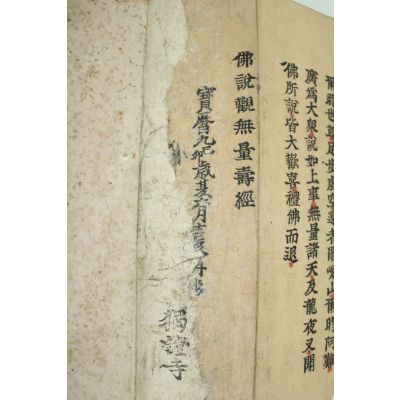 爾時世尊足步虛空還耆闍崛山爾時阿難
廣為大衆說如上事無量諸天及龍夜叉聞
佛所說皆大歡喜禮佛而退
佛說觀無量壽經
寶曆九 歲 月
證寺